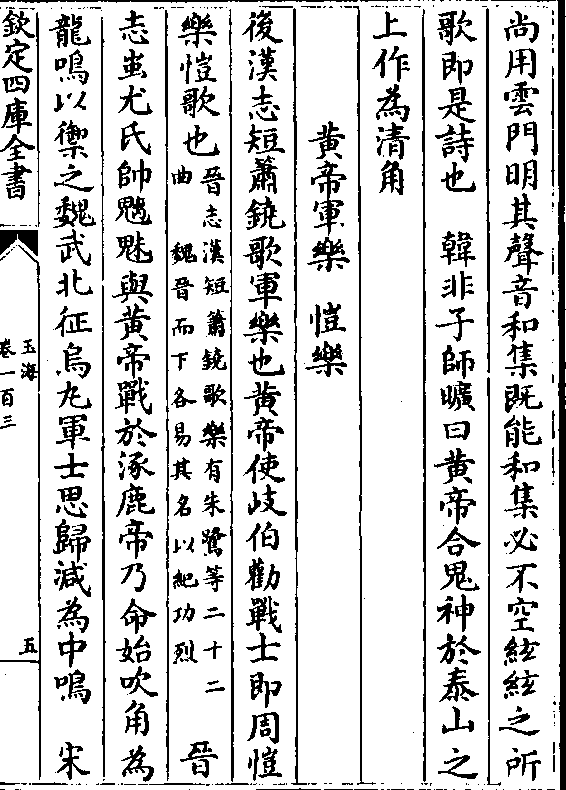 尚用雲門明其聲音和集既能和集必不空絃絃之所
歌即是詩也　韓非子師曠曰黃帝合鬼神於泰山之
上作為清角
黃帝軍樂　愷樂
後漢志短簫鐃歌軍樂也黃帝使岐伯勸戰士即周愷
樂愷歌也
晉志漢短簫鐃歌樂有朱鷺等二十二
曲　魏晉而下各易其名以紀功烈
晉
志蚩尤氏帥魑魅與黃帝戰於涿鹿帝乃命始吹角為
龍鳴以禦之魏武北征烏丸軍士思歸減為中鳴　宋
欽定四庫全書
玉海
卷一百三
五